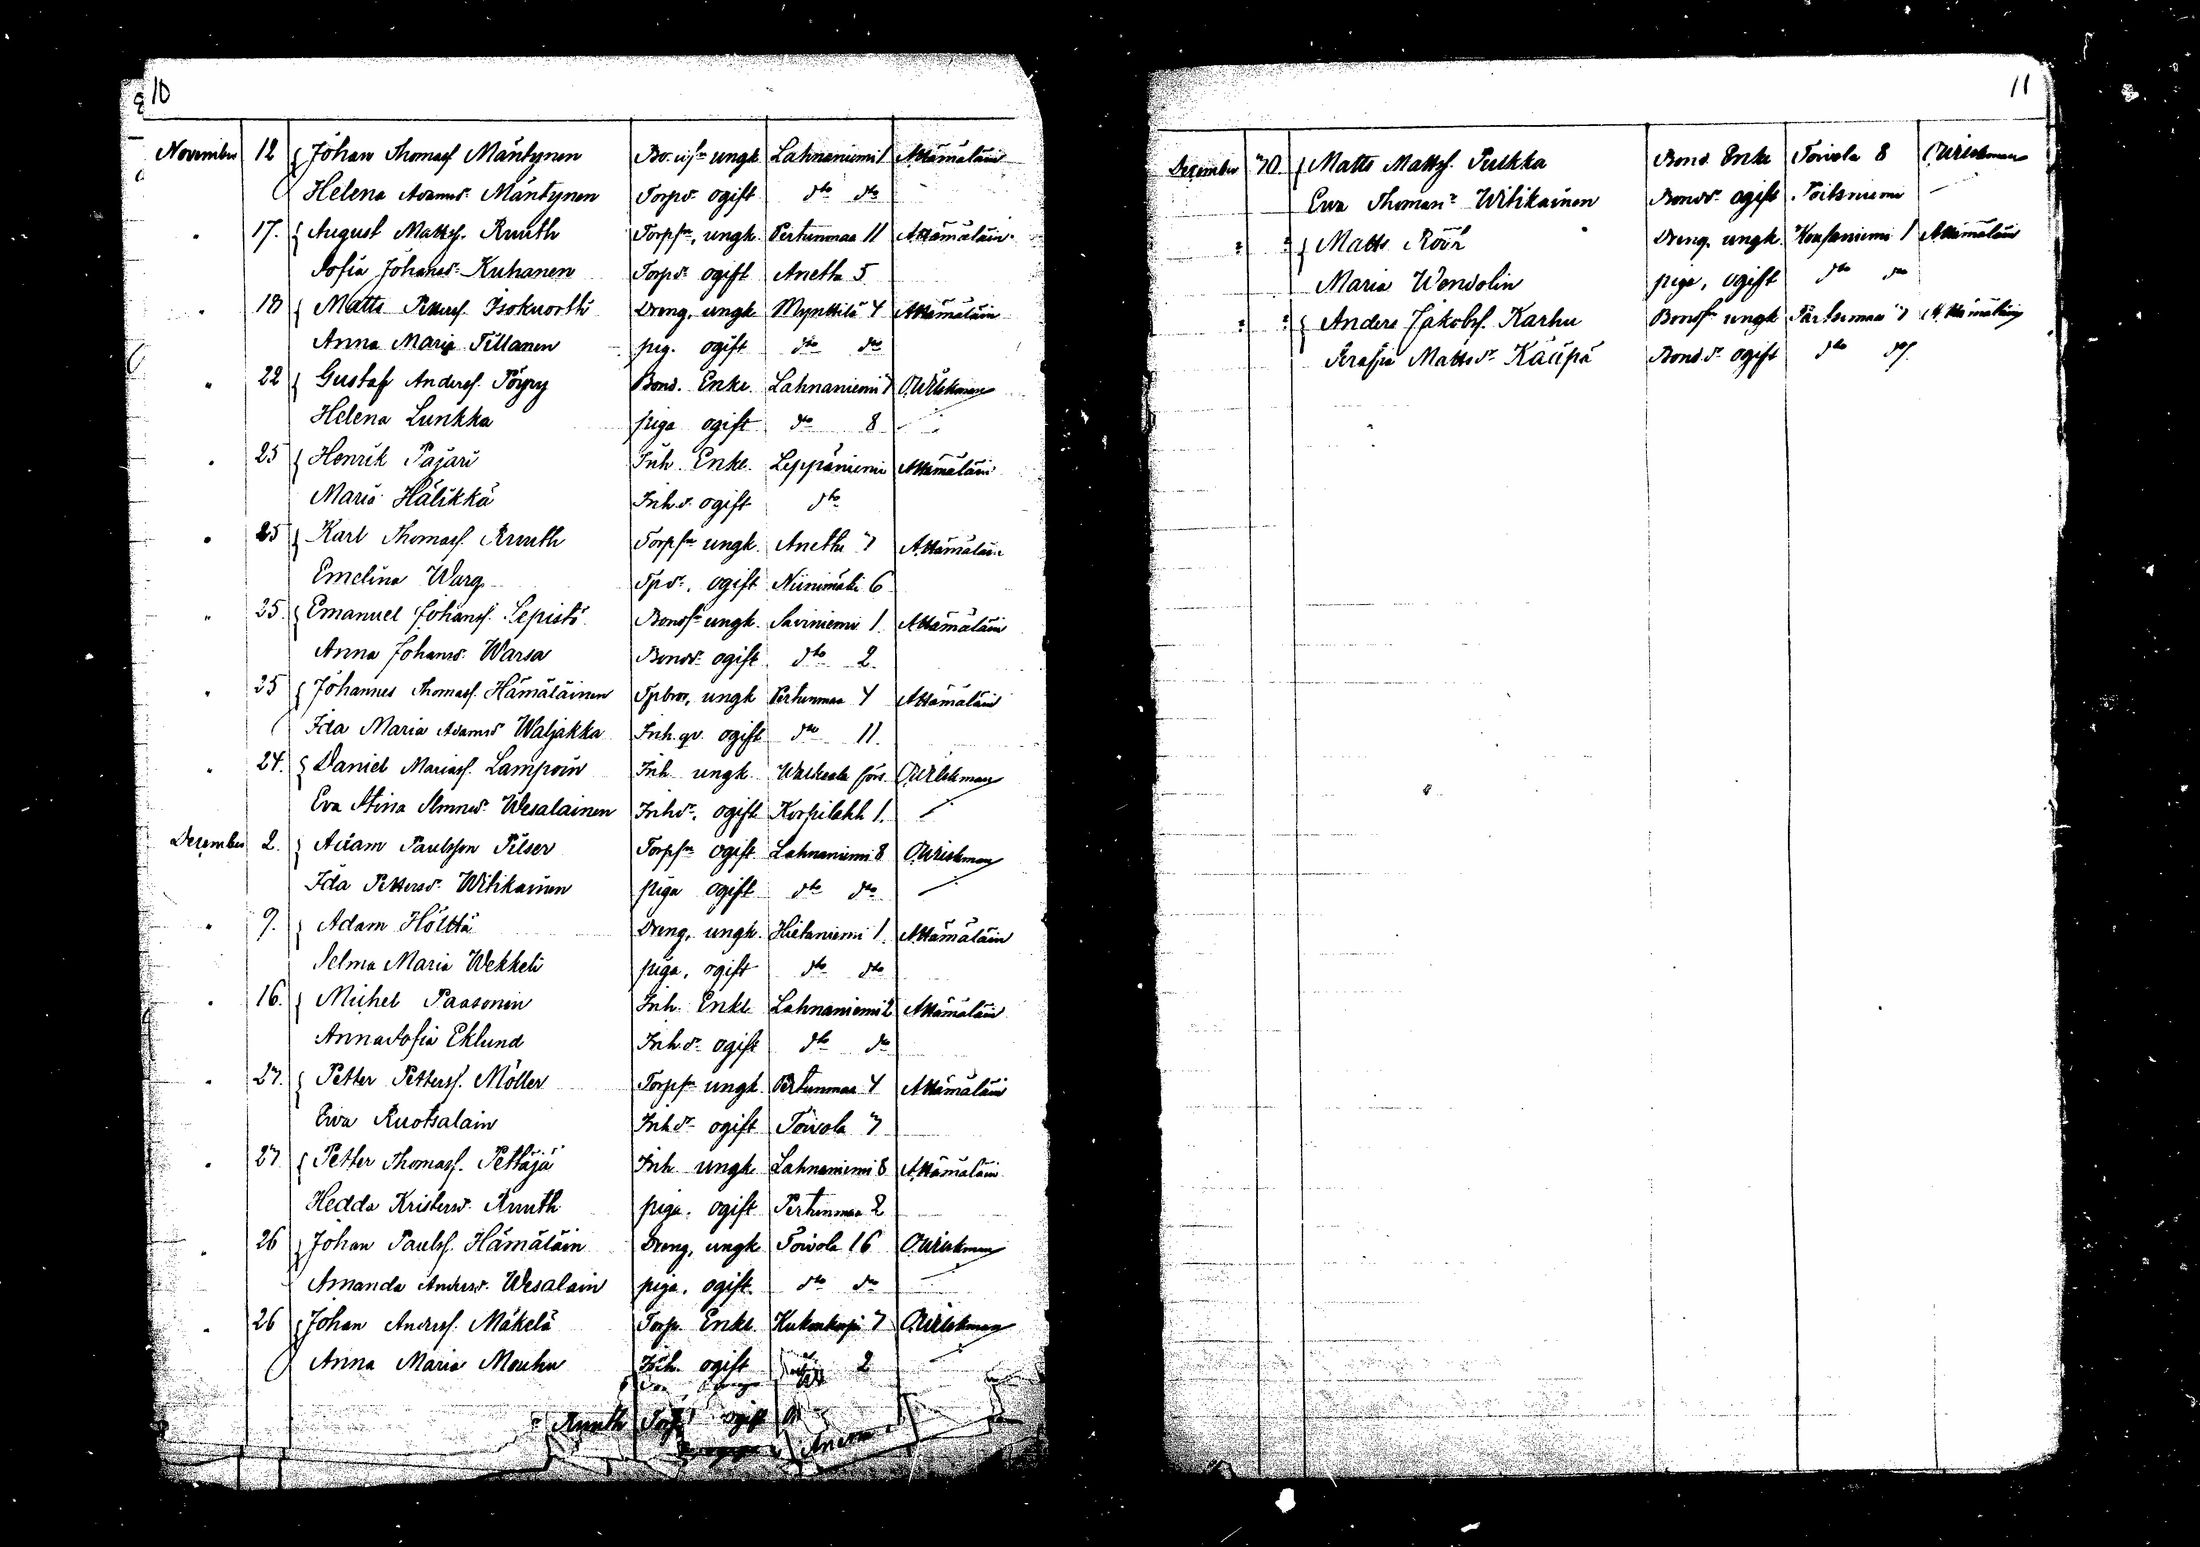 10
November 12 Johan Thomasf. Mäntynen Bondsn ungk. Lahnaniemi 1 AHämäläin
Helena Adamsd. Mäntynen Torpd. ogift dto dto
" 17. August Mattsf. Ruuth Torpsn, ungk. Pertunmaa 11 AHämäläin
Sofia Johansd. Kuhanen Torpd. ogift Anetta 5
" 18 Matts Pettersf. Isokuortti Dreng, ungk Mynttilä 4 AHämäläin
Anna Maria Tillanen pig. ogift dto dto
" 22 Gustaf Andersf. Pöyry Bond. Enkl. Lahnaniemi 7 OWickman
Helena Lunkka piga ogift do 8
" 25 Henrik Pajari Inh. Enkl. Leppäniemi AHämäläin
Maria Hälikkä Inh.d. ogift dto
" 25 Karl Thomasf. Ruuth Torpsn ungk. Anetta 7 AHämäläin
Emelina Warg Tpd. ogift Niinimäki 6
" 25. Emanuel Johansf. Sepistö Bondsn ungk. Saviniemi 1. AHämäläin
Anna Johansd. Warsa Bondd. ogift dto 2.
" 25 Johannes Thomasf. Hämäläinen Tpbror, ungk Pertunmaa 4 AHämäläin
Ida Maria Adamsd Waljakka Inh.qv. ogift dto 11.
" 24. Daniel Mariasf. Lampoin Inh ungk. Walkeala förs. OWickman
Eva Stina Simonsd. Wesalainen Inhd. ogift Korpilahti 1.
December 2. Adam Paulsson Pilser Torpsn ogift Lahnaniemi 8 OWickman
Ida Pettersd. Witikainen piga ogift dto dto
" 9. Adam Hölttä Dreng, ungk. Hietaniemi 1. AHämäläin
Selma Maria Wekkeli piga, ogift dto dto
" 16. Michel Paasonen Inh. Enkl. Lahnaniemi 2 AHämäläin
Anna Sofia Eklund Inh.d. ogift dto do
" 27. Petter Pettersf. Möller Torpsn ungk. Pertunmaa 4 AHämäläin
Ewa Ruotsalain Inhd. ogift Toivola 7
" 27 Petter Thomasf. Pettäjä Inh ungk Lahnaniemi 8 AHämäläin
Hedda Kristersd. Ruuth piga. ogift Pertunmaa 2
" 26 Johan Paulsf. Hämäläin Dreng, ungk Toivola 16 OWickman
Amanda Andersd. Wesalain piga. ogift. dto do
" 26 Johan Andersf. Mäkelä Torp. Enkl. 7 OWickman
Anna Maria Mouhu Inh. ogift 2
Ruuth Torp ogift
11
December 30. Matts Mattsf. Puikka Bond Enkl Toivola 8 OWickman
Ewa Thomasd. Witikainen Bondd. ogift
" " Matts Röör Dreng. ungk. 1 AHämäläin
Maria Wendolin piga, ogift dto do
" " Anders Jakobsf. Karhu Bondsn ungk Pärtunmaa 7 AHämäläin
Serafia Mattsd. Kääpä Bond.d. ogift dto do